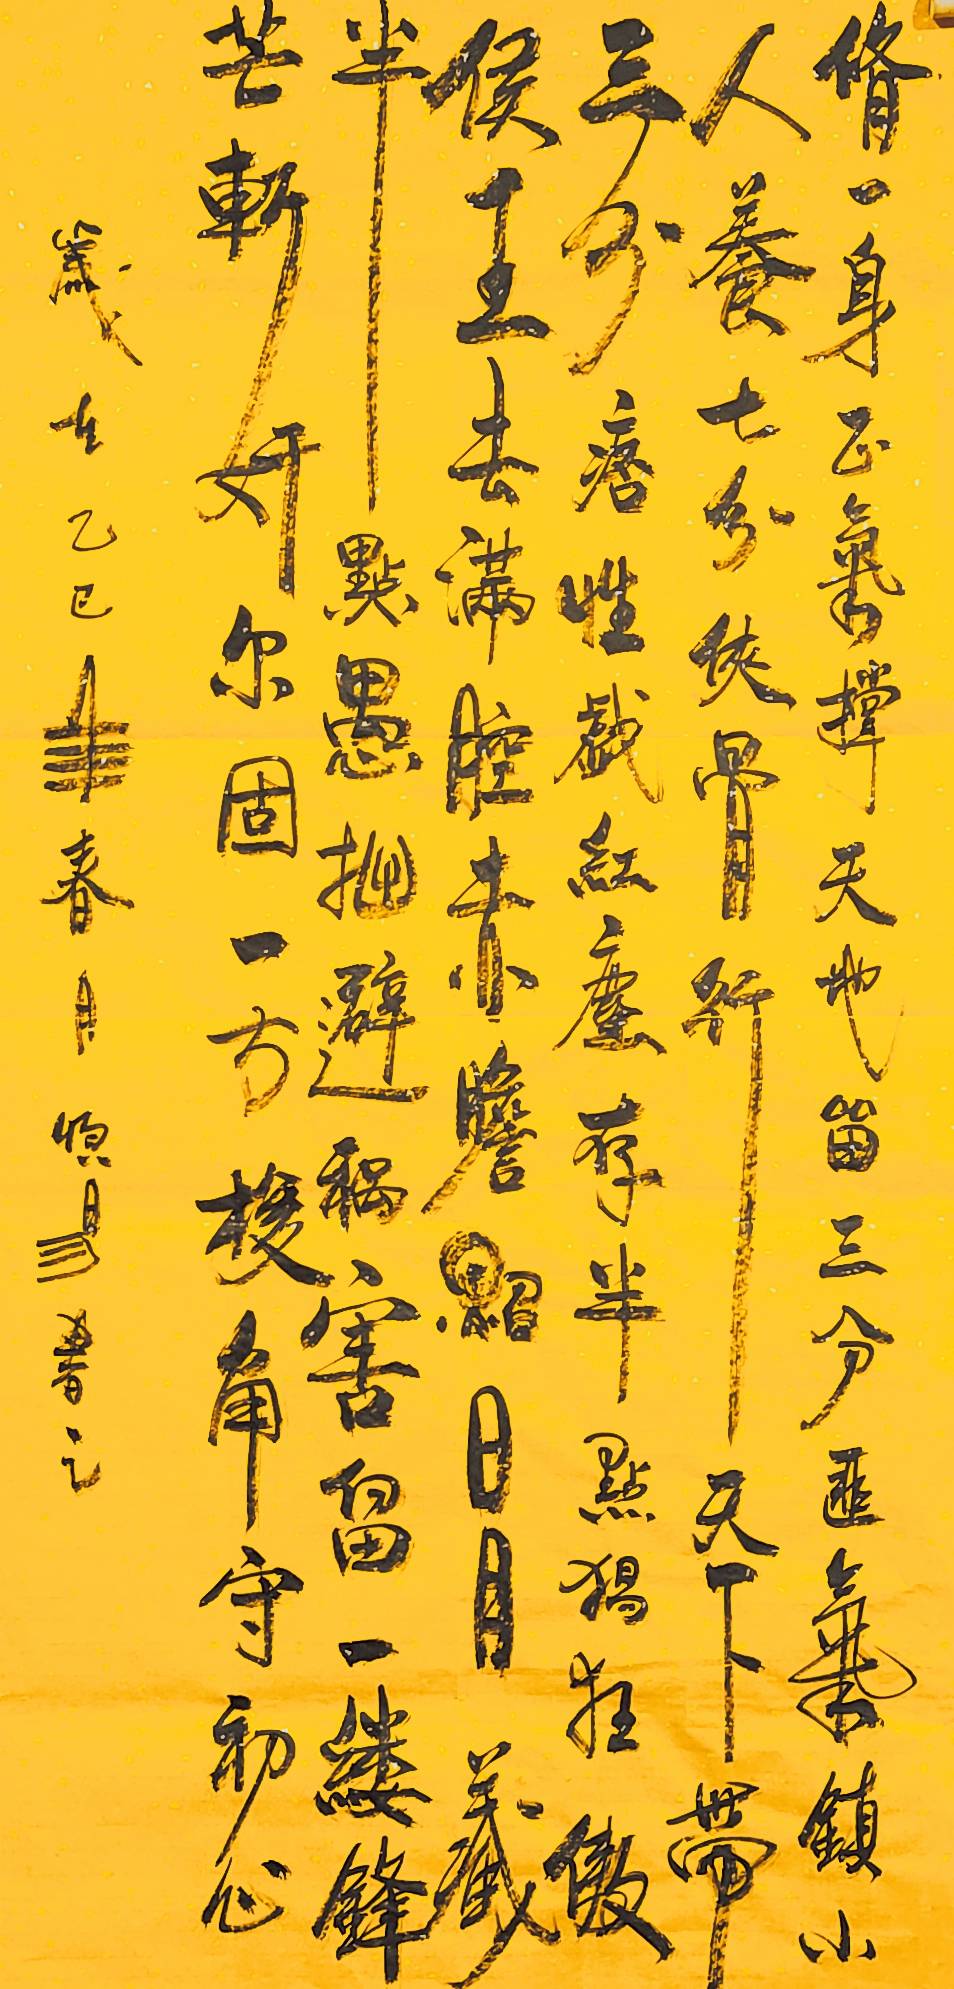 脩一身正氣撐天地留三分匪氣鎮小
人養七分俠骨行天下帶
三分痞性戲紅塵存半點猖狂傲
侯王去滿腔赤膽照日月藏
半點愚拙避禍害留一縷鋒
芒斬奸尔固一方棱角守初心
歲在乙巳年春月書之